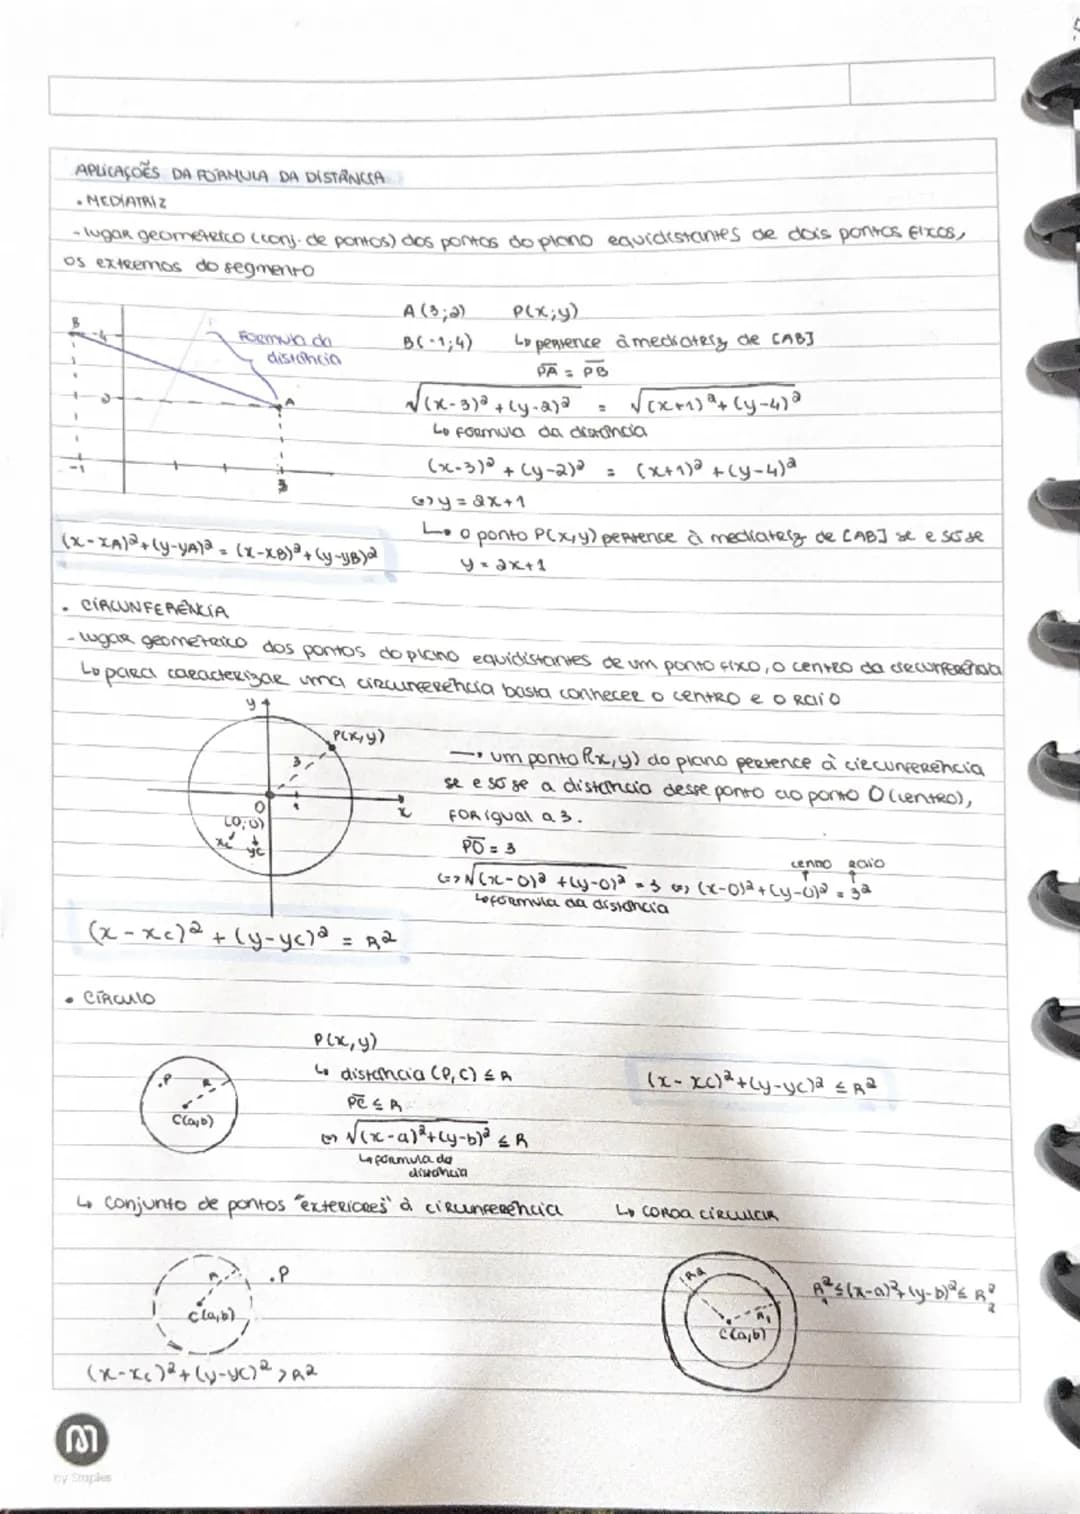 APLICAÇÕES DA FÓRMULA DA DISTÂNCIA
• MEDIATRIZ
- lugar geométrico (conj. de pontos) dos pontos do plano equidistantes de dois pontos fixos,
os extremos do segmento
B
4
Formula da
distância
2
A
-1
3
A(3;2) P(x;y)
B(-1;4) ↳ pertence à mediatriz de [AB]
PA = PB
√(x-3)²+(y-2)² = √(x+1)²+(y-4)²
↳ formula da distância
(x-3)²+(y-2)² = (x+1)²+(y-4)²
(=) y = 2x+1
↳ o ponto P(x,y) pertence à mediatriz de [AB] se e só se
y = 2x+1
(x-xA)²+(y-yA)² = (x-xB)²+(y-yB)²
• CIRCUNFERÊNCIA
- lugar geométrico dos pontos do plano equidistantes de um ponto fixo, o centro da circunferência
↳ para caracterizar uma circunferência basta conhecer o centro e o raio
y
P(x,y)
3
O
1
x
(0;0)
xc yc
→ um ponto P(x,y) do plano pertence à circunferência
se e só se a distancia desse ponto ao ponto O (centro),
for igual a 3.
PO = 3
centro raio
(=) √(x-0)²+(y-0)² = 3 (=) (x-0)²+(y-0)² = 3²
↳ formula da distância
(x-xc)²+(y-yc)² = R²
• CÍRCULO
P(x,y)
↳ distância (P,C) ≤ R
PC ≤ R
(=) √(x-a)²+(y-b)² ≤ R
↳ formula da
distância
.P
R
C(a,b)
(x-xc)²+(y-yc)² ≤ R²
↳ conjunto de pontos "exteriores" à circunferência
↳ coroa circular
R
.P
C(a,b)
(x-xc)²+(y-yc)² > R²
R2
R1
C(a,b)
R₁² ≤ (x-a)²+(y-b)² ≤ R₂²
by Staples